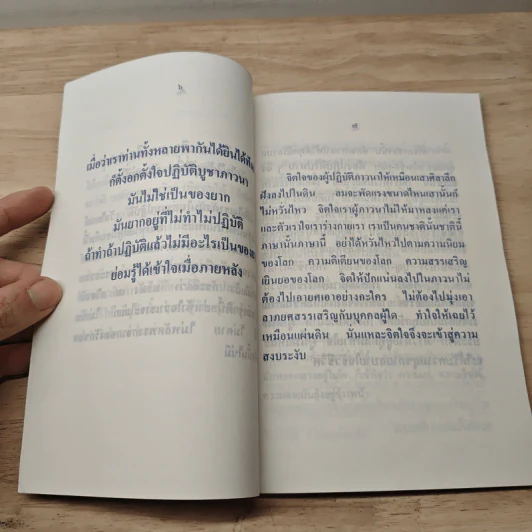 ๖
เมื่อว่าเราท่านทั้งหลายพากันได้ยินได้ฟัง
ก็ตั้งอกตั้งใจปฏิบัติบูชาภาวนา
มันไม่ใช่เป็นของยาก
มันยากอยู่ที่ไม่ทำไม่ปฏิบัติ
ถ้าทำถ้าปฏิบัติแล้วไม่มีอะไรเป็นของ
ย่อมรู้ได้เข้าใจเมื่อภายหลัง
๗
จิตใจของผู้ปฏิบัติภาวนาให้เหมือนเสาศิลาลึก
ฝังลงไปในดิน ลมจะพัดแรงขนาดไหนเสานั้นก็
ไม่หวั่นไหว จิตใจเราผู้ภาวนาไม่ให้มาหลงแค่เรา
และตัวเราใจเราร่างกายเรา เราเป็นคนชาตินั้นชาตินี้
ภาษานั้นภาษานี้ อย่าได้หวั่นไหวไปตามความนิยม
ของโลก ความติเตียนของโลก ความสรรเสริญ
เยินยอของโลก จิตให้ปักแน่นลงไปในภาวนาไม่
ต้องไปเอายศเอาอย่างอะไคร ไม่ต้องไปมุ่งเอา
ลาภยศสรรเสริญกับบุคคลผู้ใด ทำใจให้เฉยไว้
เหมือนแผ่นดิน นั่นแหละจิตใจจึงจะเข้าสู่ความ
สงบระงับ